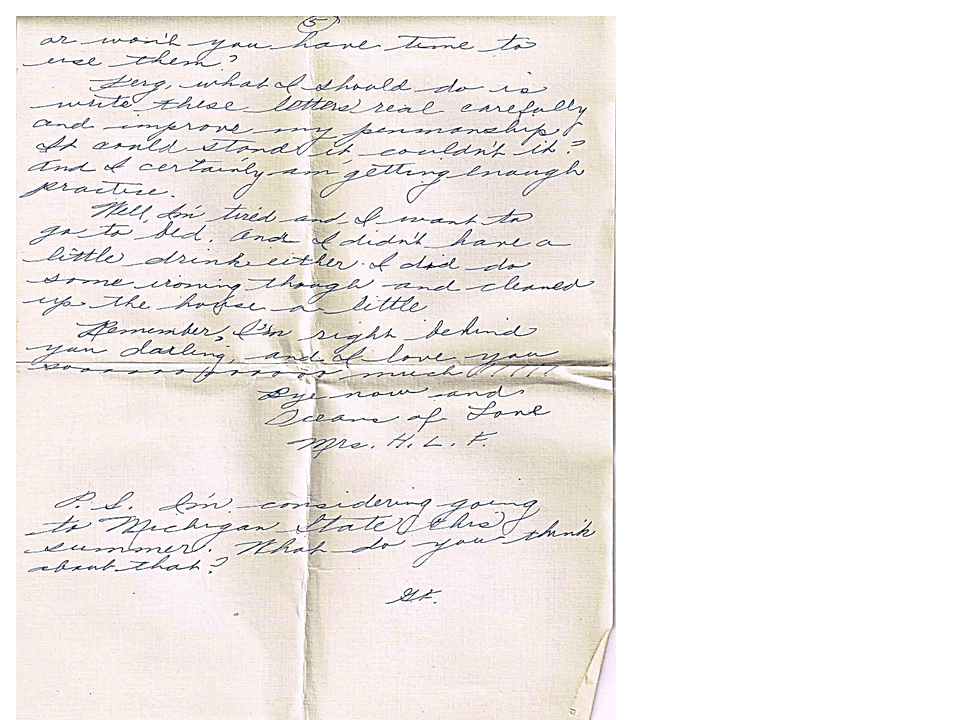 (5)
or won't you have time to
use them?
Ferg, what I should do is
write these letters real carefully
and improve my penmanship.
It could stand it, couldn't it?
And I certainly am getting enough
practice.
Well, I'm tired and I want to
go to bed. And I didn't have a
little drink either. I did do
some ironing though and cleaned
up the house a little
Remember, I'm right behind
you darling, and I love you
soooooooooooo much !!!!!!
Bye now and
Oceans of Love
Mrs. H. L. F.
P. S. I'm considering going
to Michigan State this
summer. What do you think
about that?